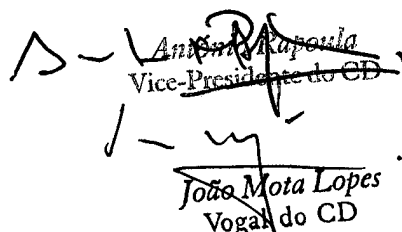 António Rapoula
Vice-Presidente do CD
João Mota Lopes
Vogal do CD